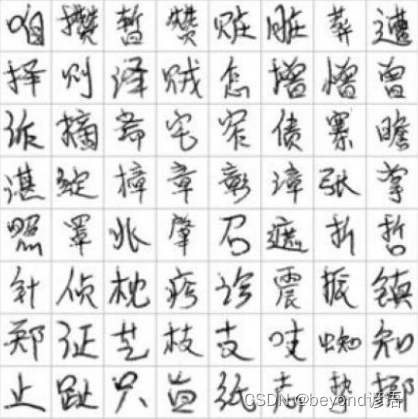 咱攒暂赞赃脏葬遭
择则泽贼怎增憎曾
诈摘斋宅窄债寨瞻
湛绽樟章彰漳张掌
照罩兆肇召遮折哲
针侦枕疹诊震振镇
郑证芝枝支吱蜘知
止趾只旨纸志挚掷
CSDN @beyond谚语